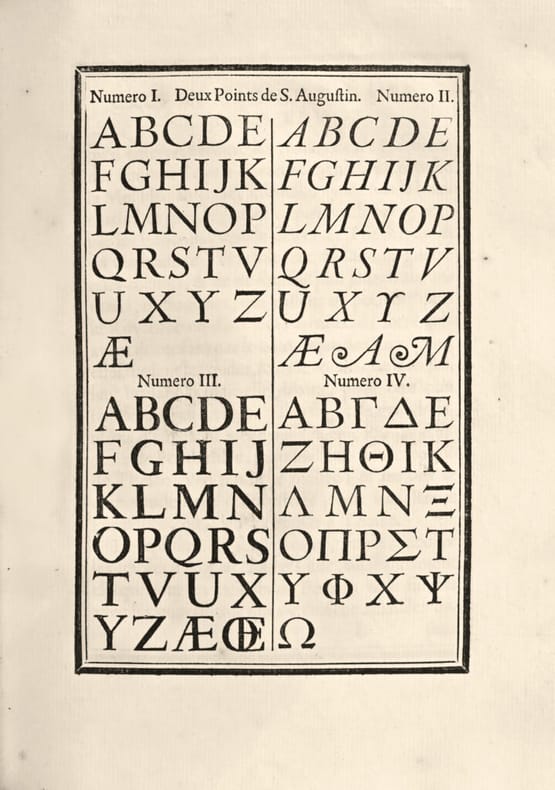 Numero I. Deux Points de S. Auguſtin. Numero II.
ABCDE
FGHIJK
LMNOP
QRSTV
UXYZ
Æ
ABCDE
FGHIJK
LMNOP
QRSTV
UXYZ
ÆAM
Numero III.
ABCDE
FGHIJ
KLMN
OPQRS
TVUX
YZÆŒ
Numero IV.
ΑΒΓΔΕ
ΖΗΘΙΚ
ΛΜΝΞ
ΟΠΡΣΤ
ΥΦΧΨ
Ω